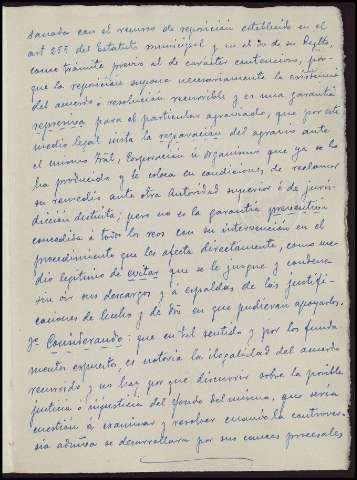 sanada con el recurso de reposición establecido en el
artº 255 del Estatuto municipal y en el de su Regltº,
como trámite previo al de carácter contencioso, por-
que la reposición supone necesariamente la existencia
del acuerdo o resolución recurrible y es una garantía
represiva para el particular agraviado, que por este
medio legal insta la reparación del agravio ante
el mismo Tral, Corporación u organismo que ya se lo
ha producido y le coloca en condiciones de reclamar
su remedio ante otra Autoridad superior ó de juris-
dicción distinta; pero no es la garantía preventiva
concedida á todos los reos con su intervención en el
procedimiento que les afecta directamente, como me-
dio legítimo de evitar que se le juzgue y condene
sin oir sus descargos y á espaldas de las justifi-
caciones de hecho y de dro en que pudieran apoyarlos.
Considerando: que en tal sentido y por los funda-
mentos expuestos, es notoria la ilegalidad del acuerdo
recurrido y no hay por que discurrir sobre la posible
justicia ó injusticia del fondo del mismo, que sería
cuestión á examinar y resolver cuando la controver-
sia aducida se desarrollara por sus cauces procesales